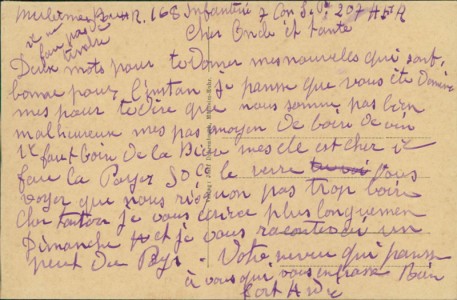 Infanterie 7 Con S.P. 207 A.F.A
Cher Oncle et tante
Deux mots pour te donner mes nouvelles qui sont
bonne pour l'instan je panse que vous ete de
mes pour te dire que nous somme pas bien
malhureux mes pas moyen de boire de vin
il faut boir de la Biere mes elle et cher il
faut la Payer 50 c le verre vous
voyer que nous risquon pas trop boir
cher tonton je vous écrire plus longuemen
Dimanche et je vous raconterai un
peut du Pays - Votre neveu qui panse
à vous qui vous embrasse Bien
fort